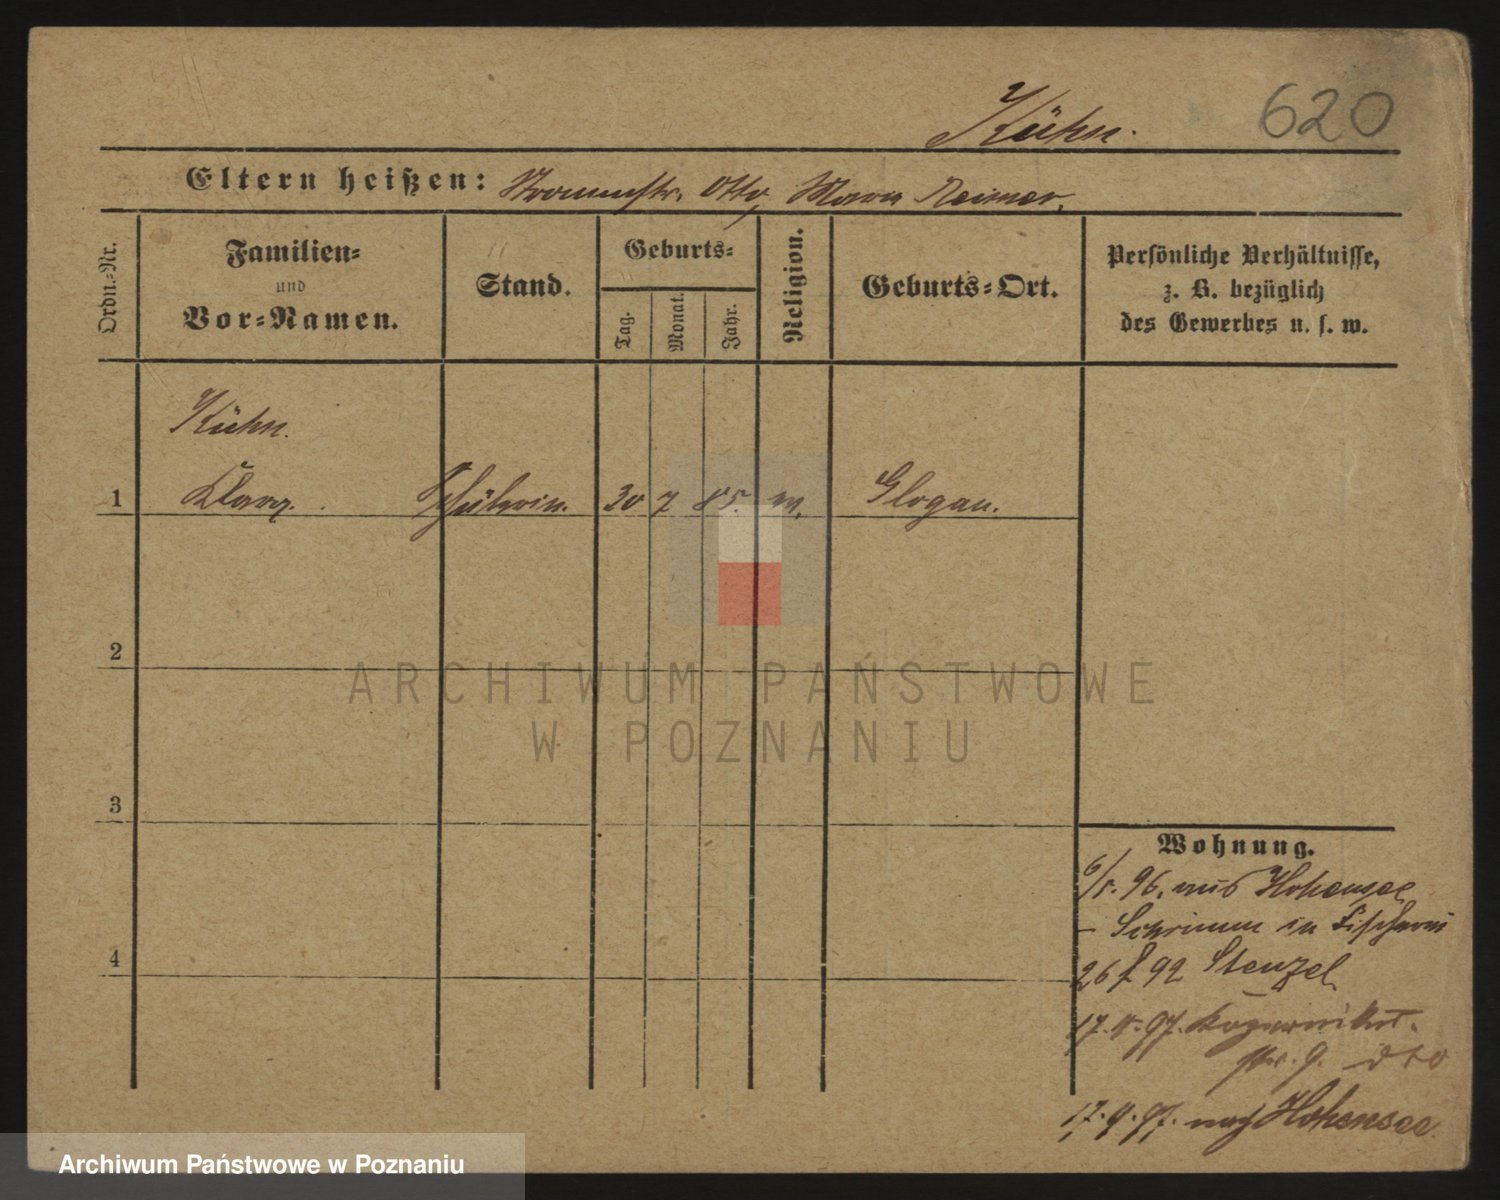 Kühn.
620
Eltern heißen: Otto, Marie Reimer.
Ordn.-Nr.
Familien-
und
Vor-Namen.
Stand.
Geburts-
Tag.
Monat.
Jahr.
Religion.
Geburts-Ort.
Persönliche Verhältnisse,
z. B. bezüglich
des Gewerbes u. s. w.
Kühn.
1 Clara. Schülerin. 30 7 85. Glogau.
2
3
4
Wohnung.
96. aus Hohensee
- Schrimm in
26 92 Stenzel
17. 97.
str. 9. dto
17. 9. 97. nach Hohensee.
ARCHIWUM PAŃSTWOWE
W POZNANIU
Archiwum Państwowe w Poznaniu